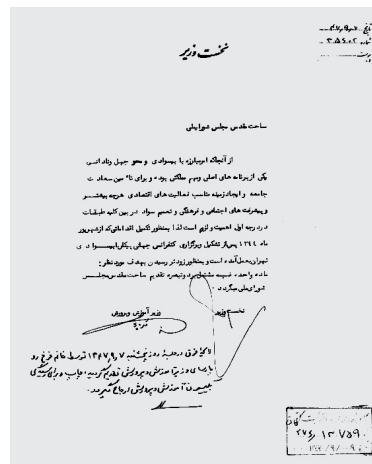 تاریخ
شماره ۳۵۶۰۲
نخست وزیر
ساحت مقدس مجلس شورایملی
از آنجا که امر مبارزه با بیسوادی و محو جهل و نادانی
یکی از برنامه های اصلی و مهم مملکتی بوده و برای تأمین سعادت
جامعه و ایجاد زمینه مناسب فعالیت های اقتصادی هر چه بیشتر
و پیشرفت های اجتماعی و فرهنگی و تعمیم سواد در بین کلیه طبقات
در درجه اول اهمیت و لزوم است لذا بمنظور تکمیل اقداماتی که از شهریور
ماه ۱۳۴۴ پس از تشکیل و برگزاری کنفرانس جهانی پیکار با بیسوادی
تهران بعمل آمده است و بمنظور زودتر رسیدن بهدف مورد نظر
ماده واحده ضمیمه مشتمل بر تبصره تقدیم ساحت مقدس مجلس
شورای ملی میگردد
نخست وزیر
وزیر آموزش و پرورش
لایحه فوق در جلسه روز پنجشنبه ۱۳۴۷/۹/۷ توسط خانم فرخ رو
پارسای وزیر آموزش و پرورش تقدیم گردید
کمیسیون آموزش و پرورش ارجاع میگردد
۱۳۷۵۹